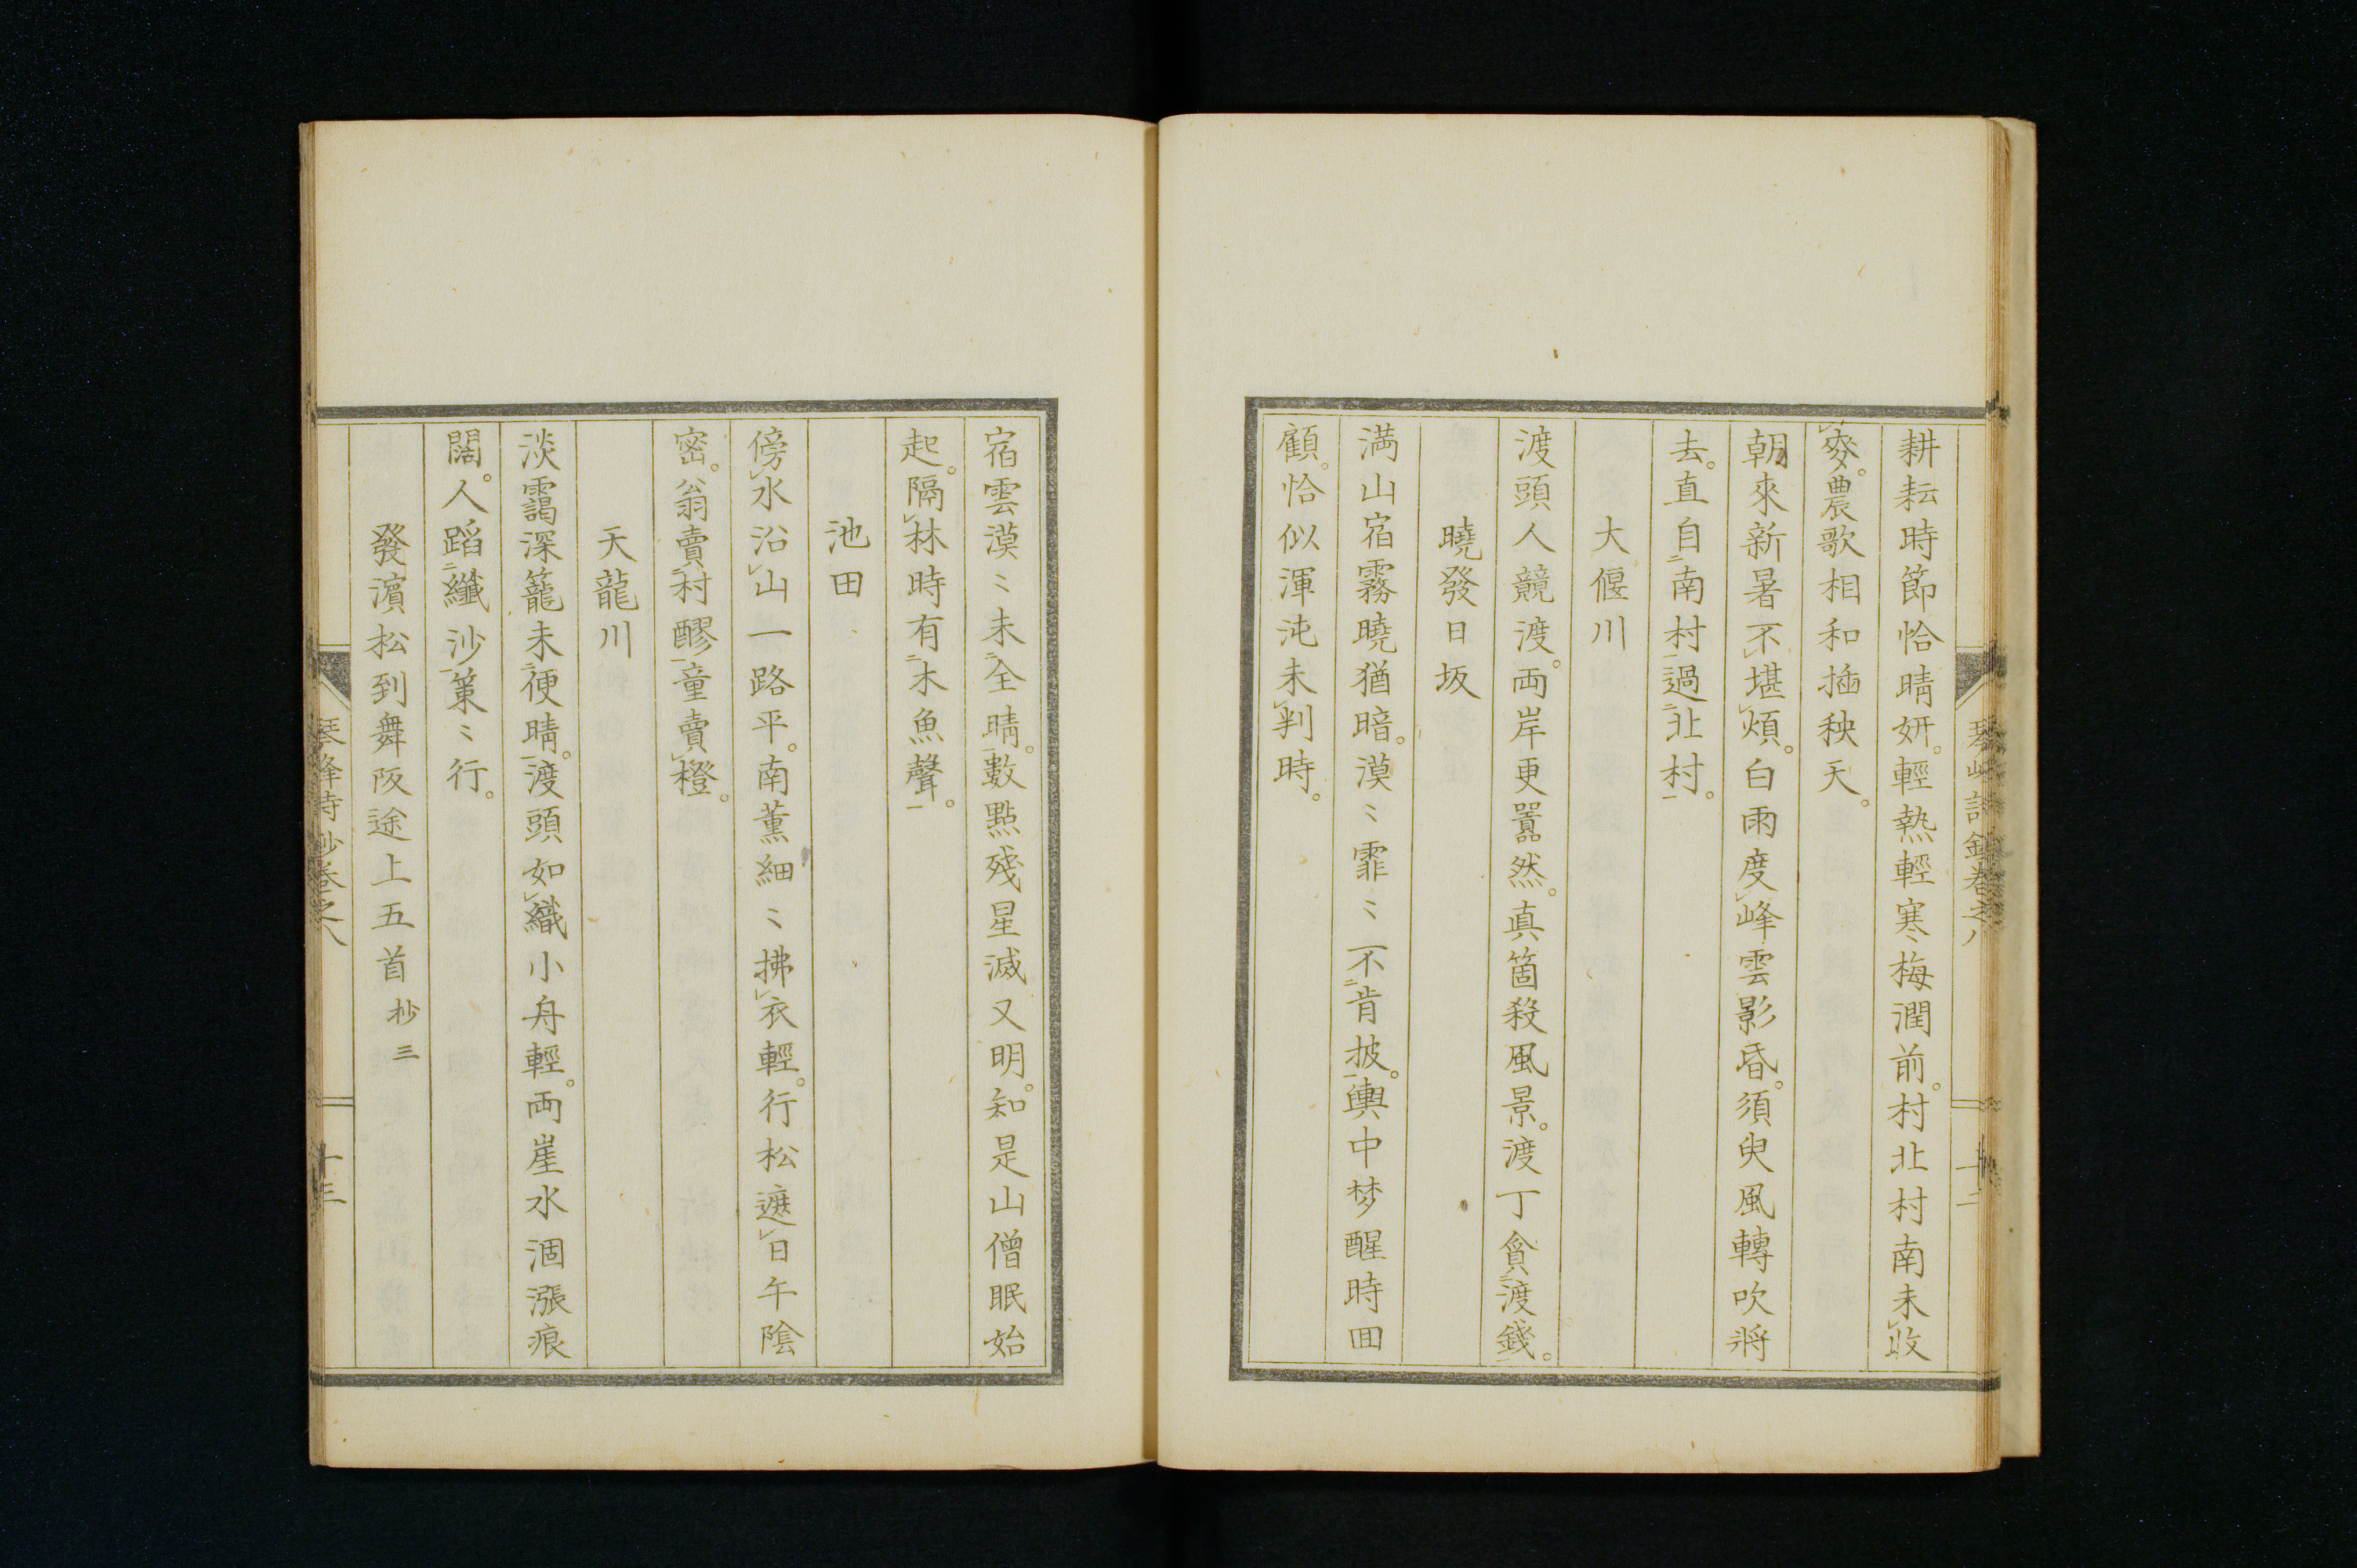 耕耘時節恰晴姸。輕熱輕寒梅潤前。村北村南未㆑收
㆑麥。農歌相和插秧天。
朝來新暑不㆑堪㆑煩。白雨度㆑峰雲影昏。須臾風轉吹將
去。直自㆓南村㆒過㆓北村㆒。
大偃川
渡頭人競渡。両岸更囂然。真箇殺風景。渡丁貪㆓渡錢㆒。
曉發日坂
満山宿霧曉猶暗。漠〻霏〻不㆓肯披㆒。輿中梦醒時囬
顧。恰似渾沌未㆑判時。
琴峰詩鈔卷之八
十二
宿雲漠〻未㆓全晴㆒。數點殘星滅又明。知是山僧眠始
起。隔㆑林時有㆓木魚聲㆒。
池田
傍㆑水沿㆑山一路平。南薰細〻拂㆑衣輕。行松遮㆑日午陰
密。翁賣㆓村醪㆒童賣㆑橙。
天龍川
淡靄深籠未㆓便晴㆒。渡頭如㆑織小舟輕。両崖水涸漲痕
闊。人蹈㆓纖沙㆒策〻行。
發濵松到舞阪途上五首 杪三
琴峰詩鈔卷之八
十三